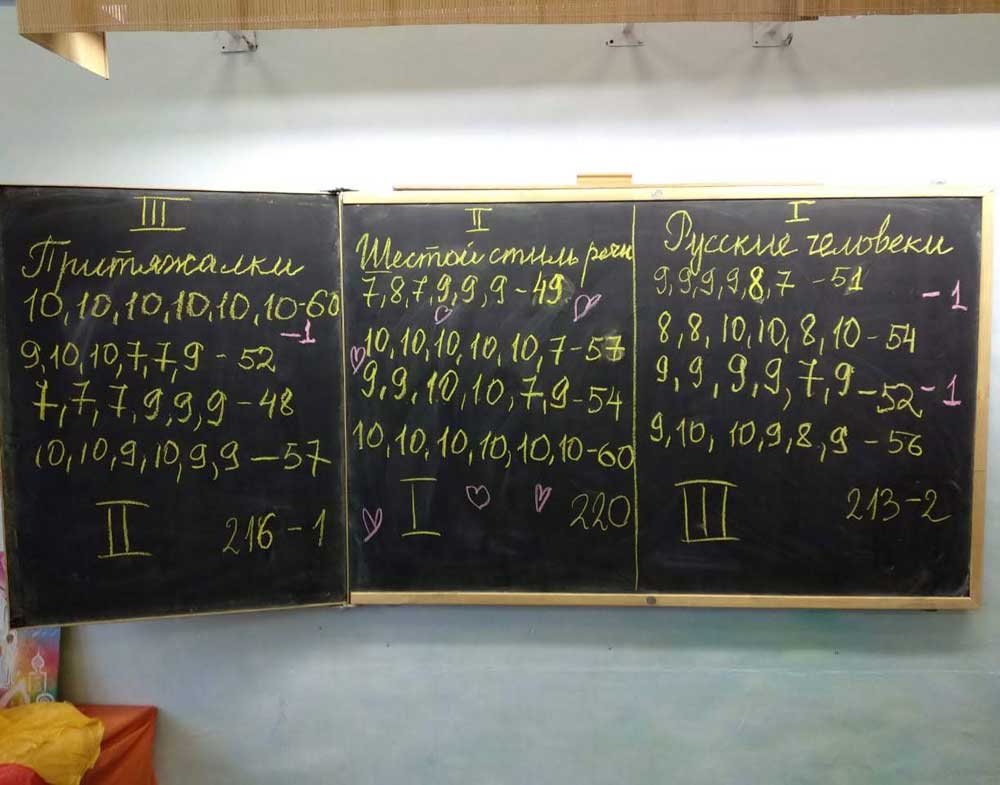 III
Притяжалки
10, 10, 10, 10, 10, 10-60
-1
9, 10, 10, 7, 7, 9 - 52
7, 7, 7, 9, 9, 9 - 48
10, 10, 9, 10, 9, 9 - 57
II 216 - 1
II
Шестой стиль речи
7, 8, 7, 9, 9, 9 - 49
10, 10, 10, 10, 10, 7 - 57
9, 9, 10, 10, 7, 9 - 54
10, 10, 10, 10, 10, 10 - 60
I 220
I
Русские человеки
9, 9, 9, 9, 8, 7 - 51 -1
8, 8, 10, 10, 8, 10 - 54
9, 9, 9, 9, 7, 9 - 52 -1
9, 10, 10, 9, 8, 9 - 56
III 213 - 2